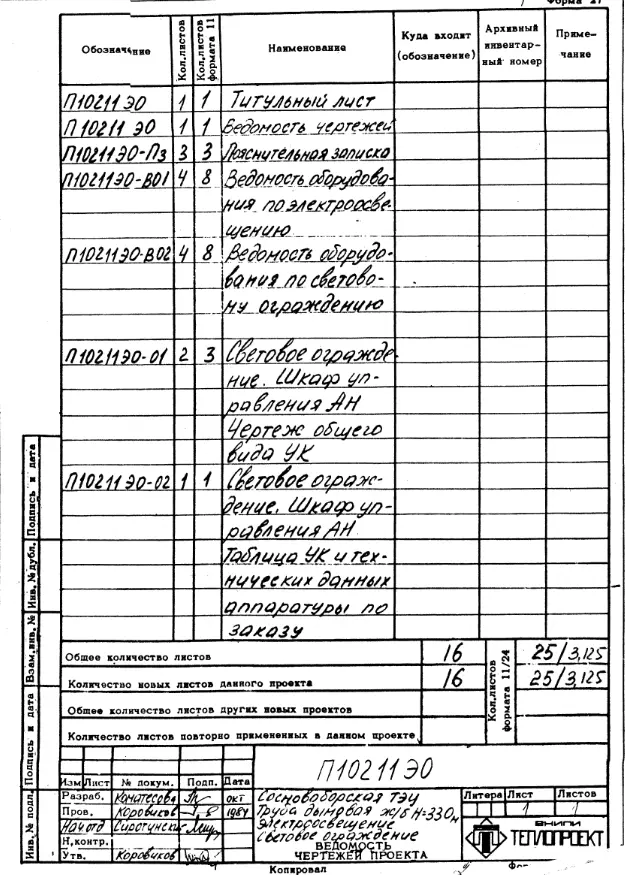 Форма 27
Обозначение Кол.листов Кол.листов формата 11 Наименование Куда входит (обозначение) Архивный инвентарный номер Примечание
П10211 ЭО 1 1 Титульный лист
П10211 ЭО 1 1 Ведомость чертежей
П10211ЭО-ПЗ 3 3 Пояснительная записка
П10211ЭО-В01 4 8 Ведоность оборудова-
ния по электроосве-
щению
П10211ЭО-В02 4 8 Ведомость оборудо-
вания по светово-
му ограждению
П10211ЭО-01 2 3 Световое огражде-
ние. Шкаф уп-
равления АН
Чертеж общего
вида УК
П10211ЭО-02 1 1 Световое ограж-
дение. Шкаф уп-
равления АН
Таблица УК и тех-
нических данных
аппаратуры по
заказу
Общее количество листов 16 Кол.листов формата 11/24 25/3,125
Количество новых листов данного проекта 16 25/3,125
Общее количество листов других новых проектов
Количество листов повторно примененных в данном проекте
П10211ЭО
Изм Лист № докум. Подп. Дата
Разраб. окт
Пров. Коровиков 1984
Нач отд Сиротинский
Н.контр.
Утв. Коровиков
Сосновоборская ТЭЦ
Труба дымовая ж/б Н=330м
Электроосвещение
Световое ограждение
ВЕДОМОСТЬ
ЧЕРТЕЖЕЙ ПРОЕКТА
Литера Лист Листов
1 1
ВНИПИ
ТЕПЛОПРОЕКТ
Копировал
Инв.№ подл. Подпись и дата Взам.инв.№ Инв.№ дубл. Подпись и дата